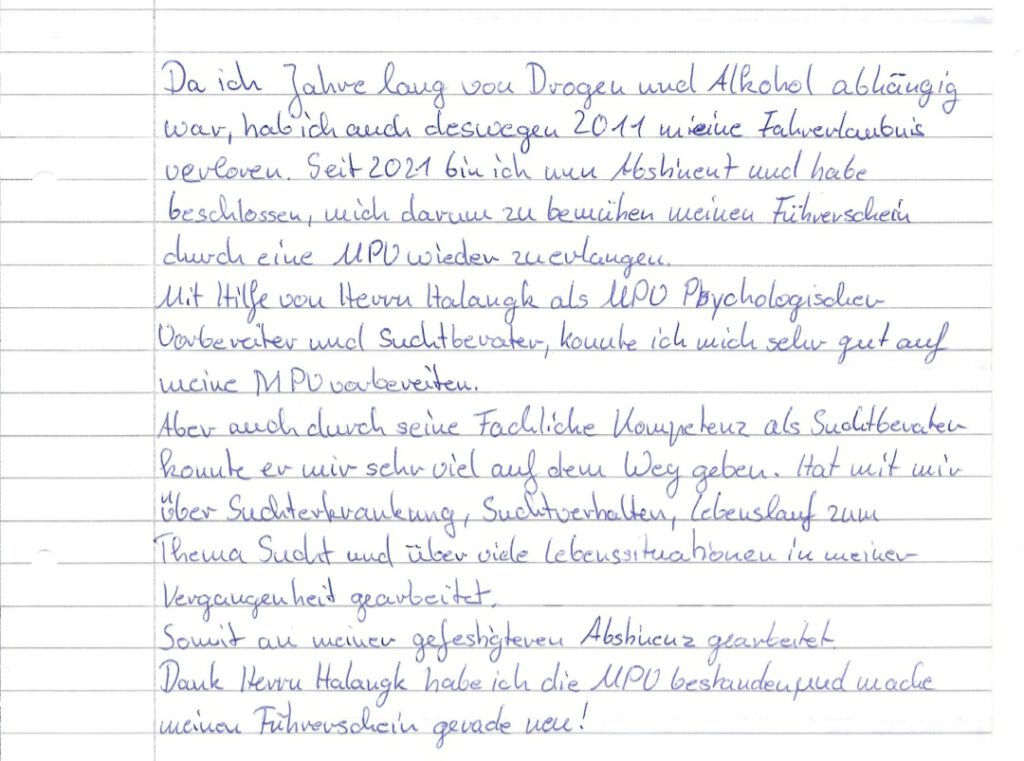 Da ich Jahre lang von Drogen und Alkohol abhängig
war, hab ich auch deswegen 2011 meine Fahrerlaubnis
verloren. Seit 2021 bin ich nun Abstinent und habe
beschlossen, mich darum zu bemühen meinen Führerschein
durch eine MPU wieder zu erlangen.
Mit Hilfe von Herrn Halangk als MPU Psychologischer
Vorbereiter und Suchtberater, konnte ich mich sehr gut auf
meine MPU vorbereiten.
Aber auch durch seine Fachliche Kompetenz als Suchtberater
konnte er mir sehr viel auf dem Weg geben. Hat mit mir
über Suchterkrankung, Suchtverhalten, Lebenslauf zum
Thema Sucht und über viele Lebenssituationen in meiner
Vergangenheit gearbeitet.
Somit an meiner gefestigteren Abstinenz gearbeitet.
Dank Herrn Halangk habe ich die MPU bestanden, und mache
meinen Führerschein gerade neu!